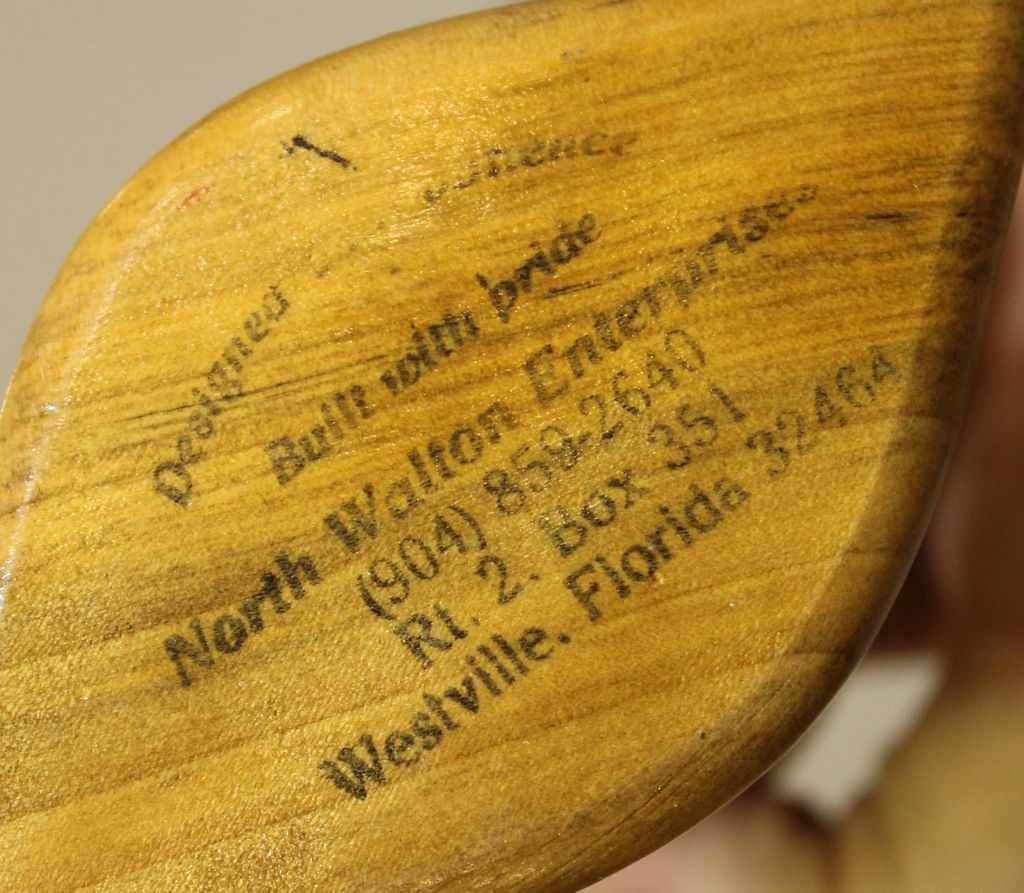 Designed
Built with pride
North Walton Enterprises
(904) 859-2640
Rt. 2, Box 351
Westville, Florida 32464